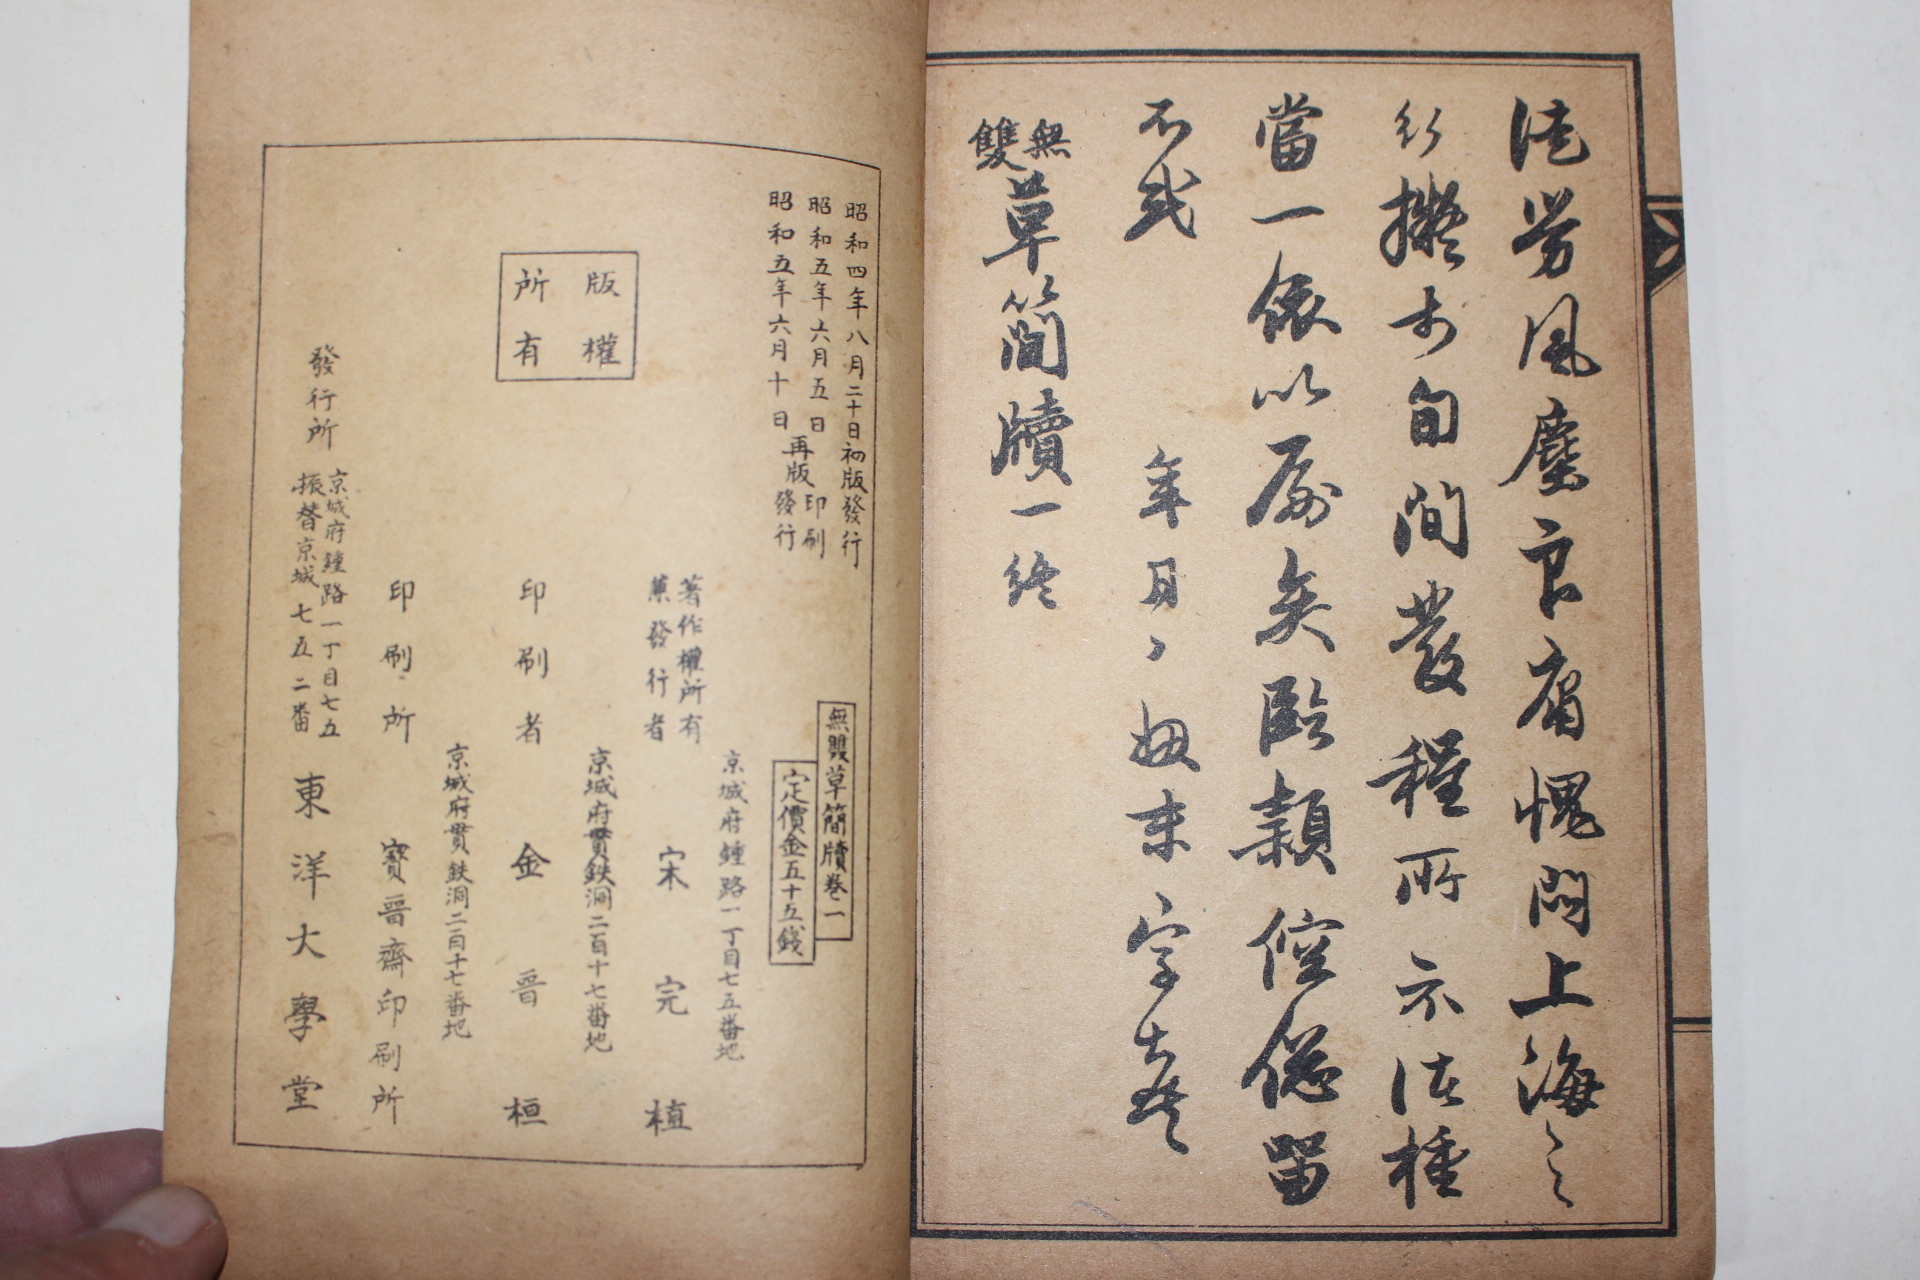 徒勞風塵良庸愧悶上海之
行擬於旬間發程所示諸種
當一依以爲矣臨穎倥傯留
不戒
年月、姻末字夫等
無雙草簡牘一終
昭和四年八月二十日初版發行
昭和五年六月五日再版印刷
昭和五年六月十日再版發行
無雙草簡牘卷一
定價金五十五錢
版權所有
京城府鍾路一丁目七五番地
著作權所有
兼發行者
宋完植
京城府貫鉄洞二百十七番地
印刷者 金晉桓
京城府貫鉄洞二百十七番地
印刷所 寶晋齋印刷所
發行所
京城府鍾路一丁目七五
振替京城七五二番
東洋大學堂